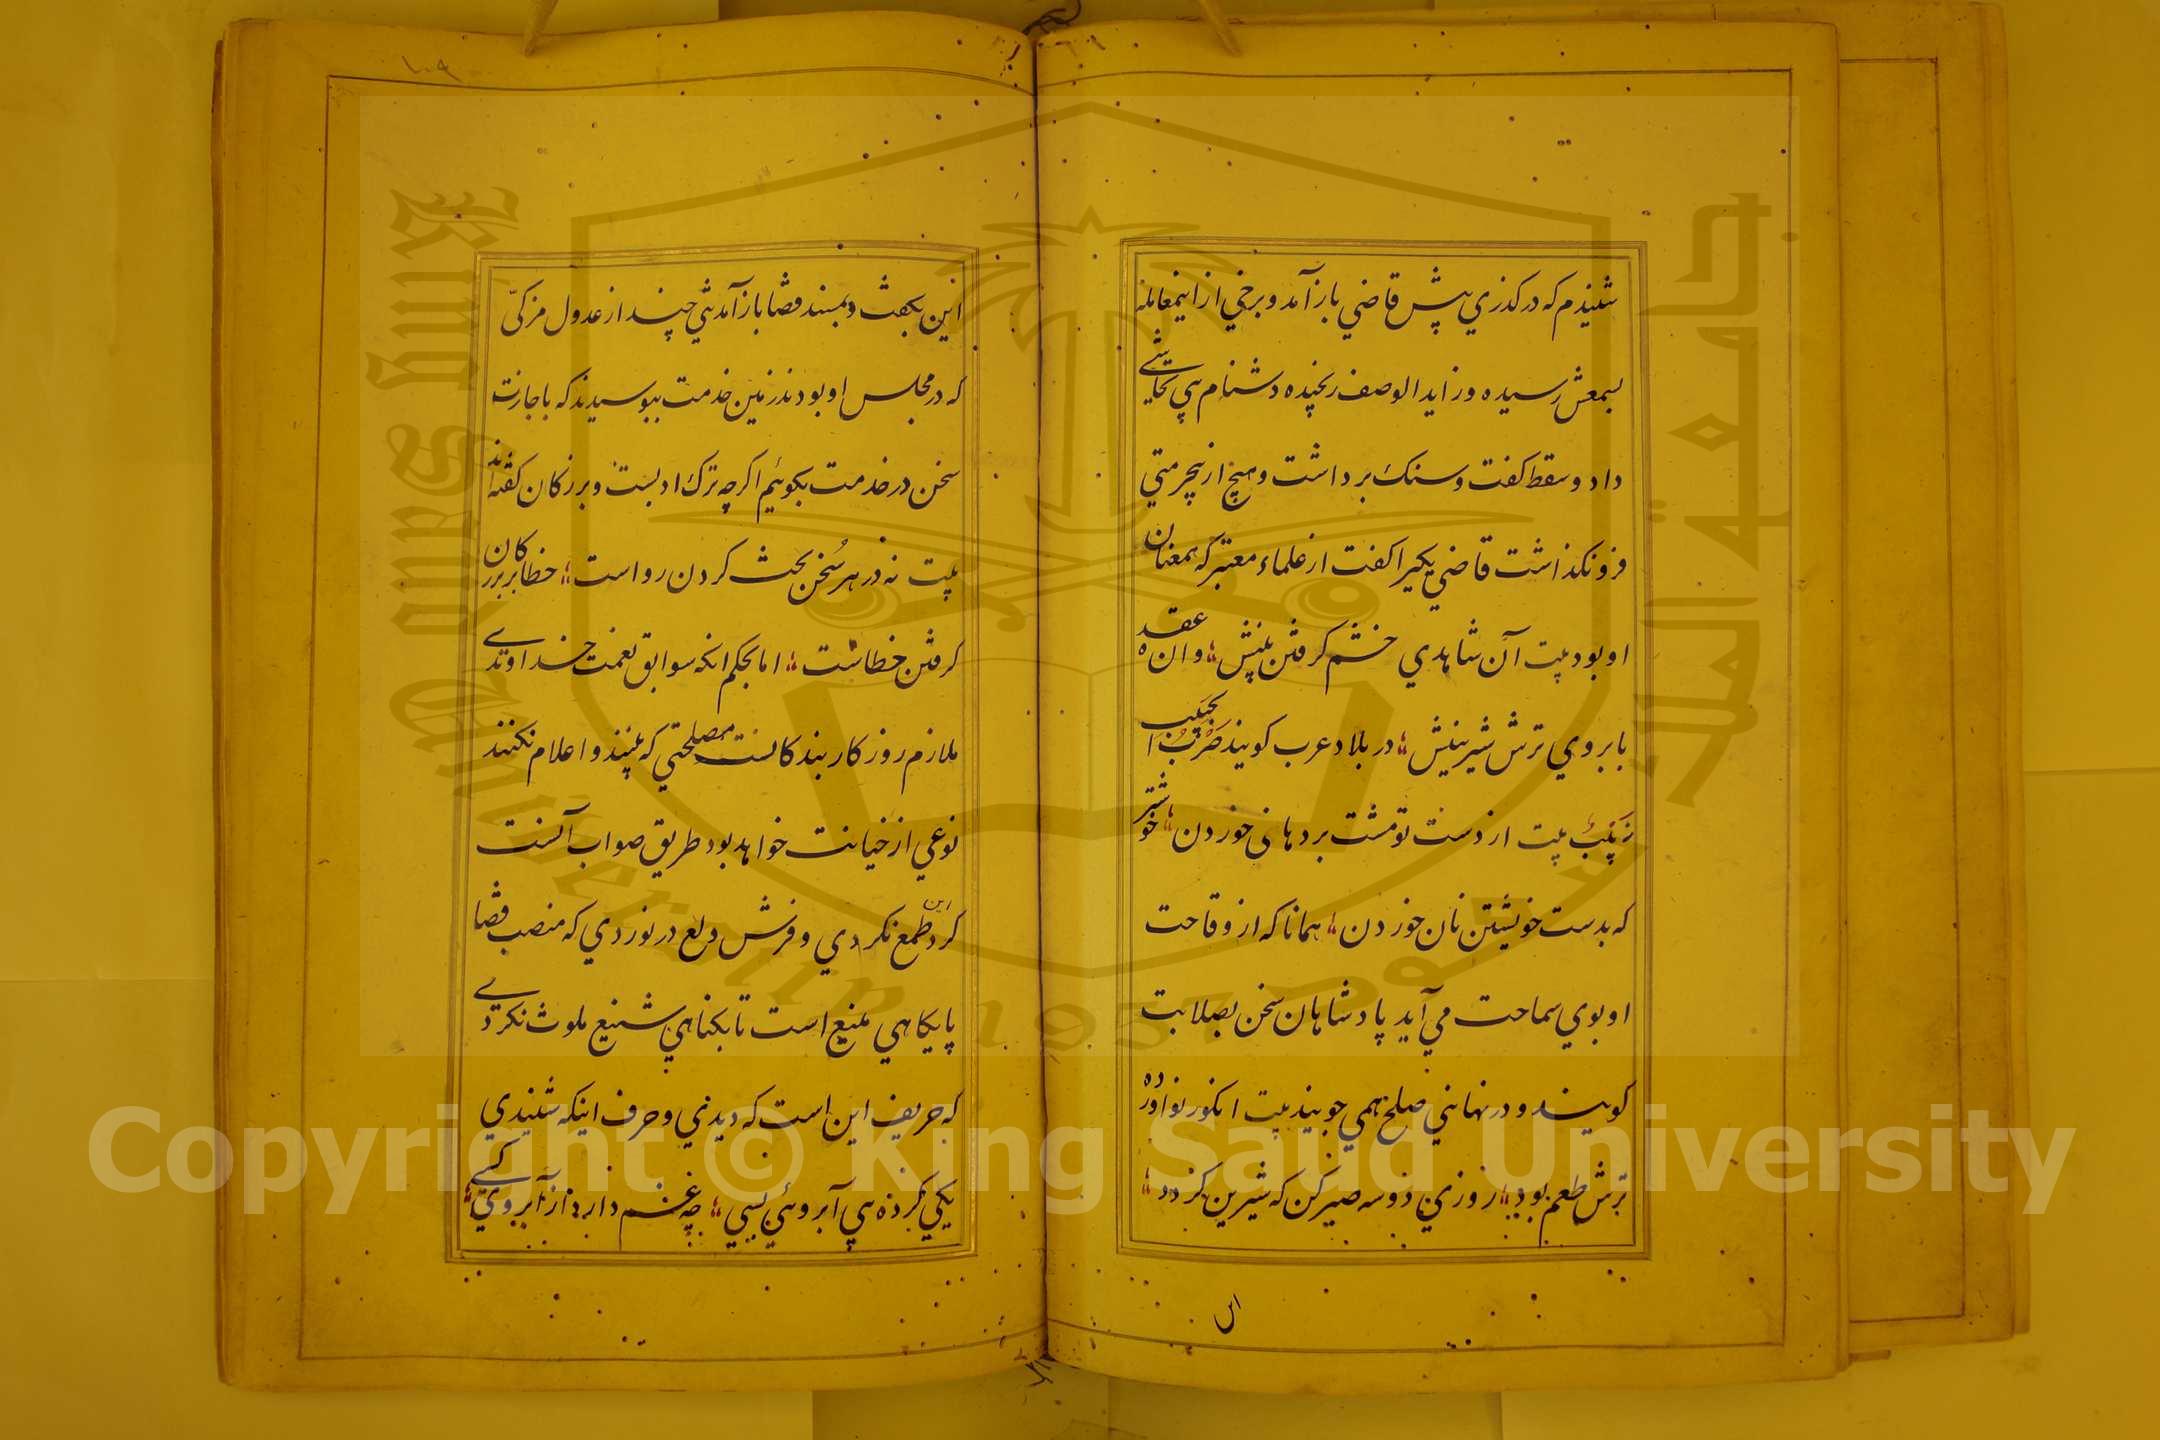 شنیدم که در کذري پیش قاضي باز آمد و برخي از اینمعامله
بسمعش رسیده و زاید الوصف رنجیده دشنام بي تحاشے
داد و سقط کفت و سنک برداشت و هیچ از بیحرمتي
فرو نکذاشت قاضي یکیرا کفت از علماء معتبر که همعنان
او بود بیت آن شاهدي خشم کرفتن بینش وان عقده
بابروي ترش شیرینش در بلاد عرب کویند ضَرْبُ الحبیبِ
زَبِیْبٌ بیت از دست تو مشت بردهانی خوردن خوشتر
که بدست خویشتن نان خوردن همانا که از وقاحت
او بوي سماحت مي آید پادشاهان سخن بصلابت
کویند و در نهاني صلح همي جویند بیت انکور نو آورده
ترش طعم بود روزي دو سه صبر کن که شیرین کردد
این
این بکفت و بمسند قضا باز آمد تني چند از عدول مزکیّ
که در مجلس او بودند زمین خدمت ببوسیدند که باجازت
سخن در خدمت بکوئیم اکرچه ترک ادبست و بزرکان کفته اند
بیت نه در هر سُخن بحث کردن رواست خطا بر بزرکان
کرفتن خطاست اما بحکم انکه سوابق نعمت خداوندے
ملازم روزکار بندکانست مصلحتي که بینند و اعلام نکنند
نوعي از خیانت خواهد بود طریق صواب آنست
کرد این طمع نکردي و فرش ولع در نوردي که منصب قضا
پایکاهي منیع است تا بکناهي شنیع ملوث نکردے
که حریف این است که دیدي و حرف اینکه شنیدي
یکي کرده بي آبروئي بسي چه غم دارد از آبروي کسے
Copyright © King Saud University
King Saud University 1957
جامعة الملك سعود